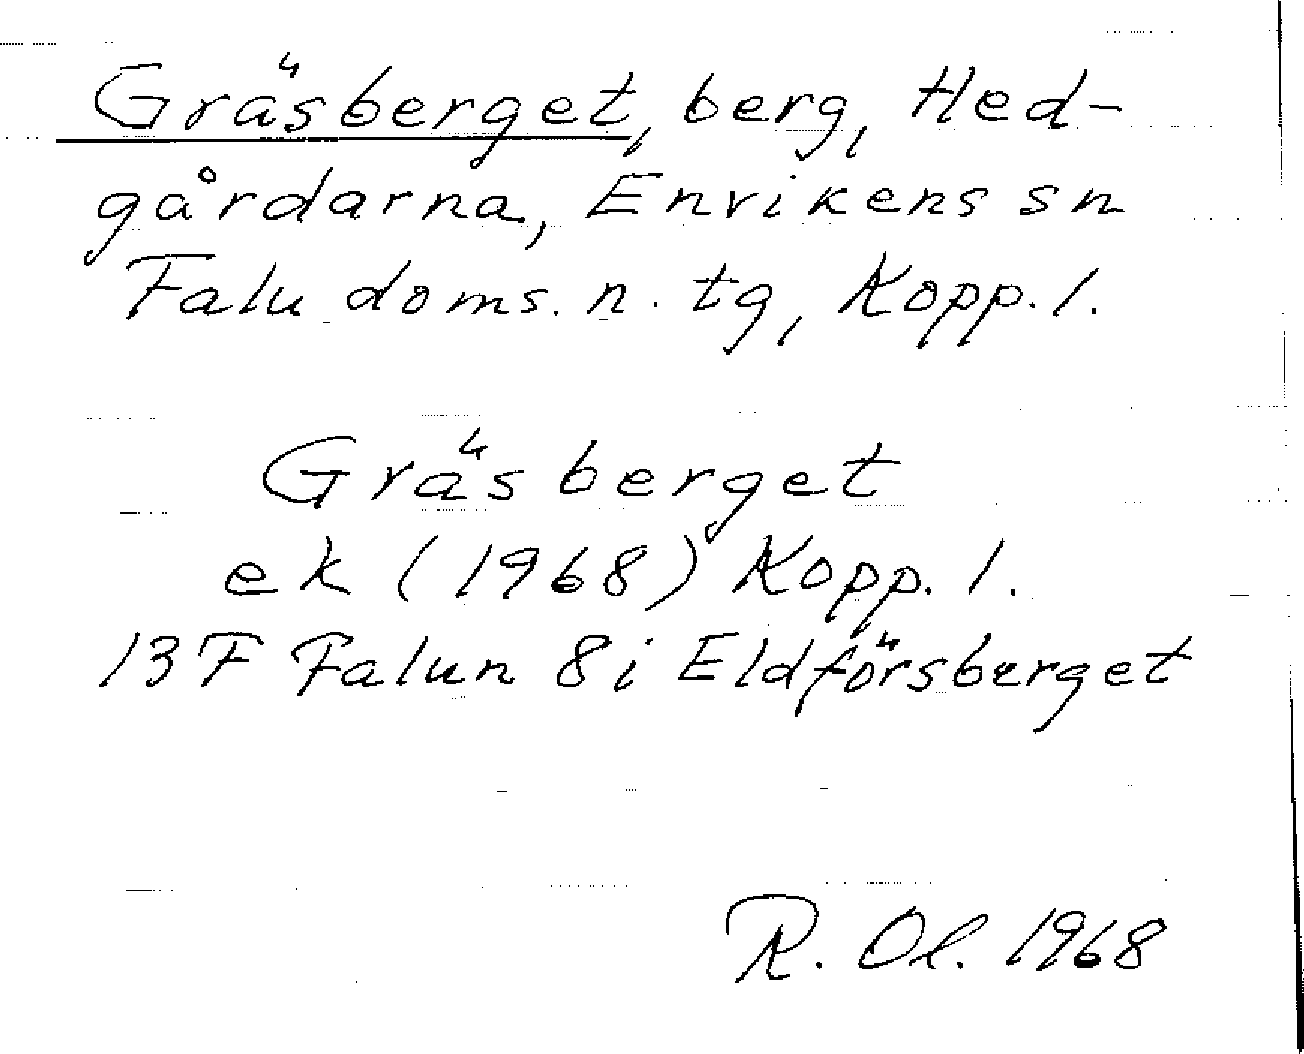 Gräsberget, berg, Hed-
gårdarna, Envikens sn
Falu doms. n. tg, Kopp. l.
Gräsberget
ek (1968) Kopp. l.
13F Falun 8i Eldförsberget
R. Ol. 1968